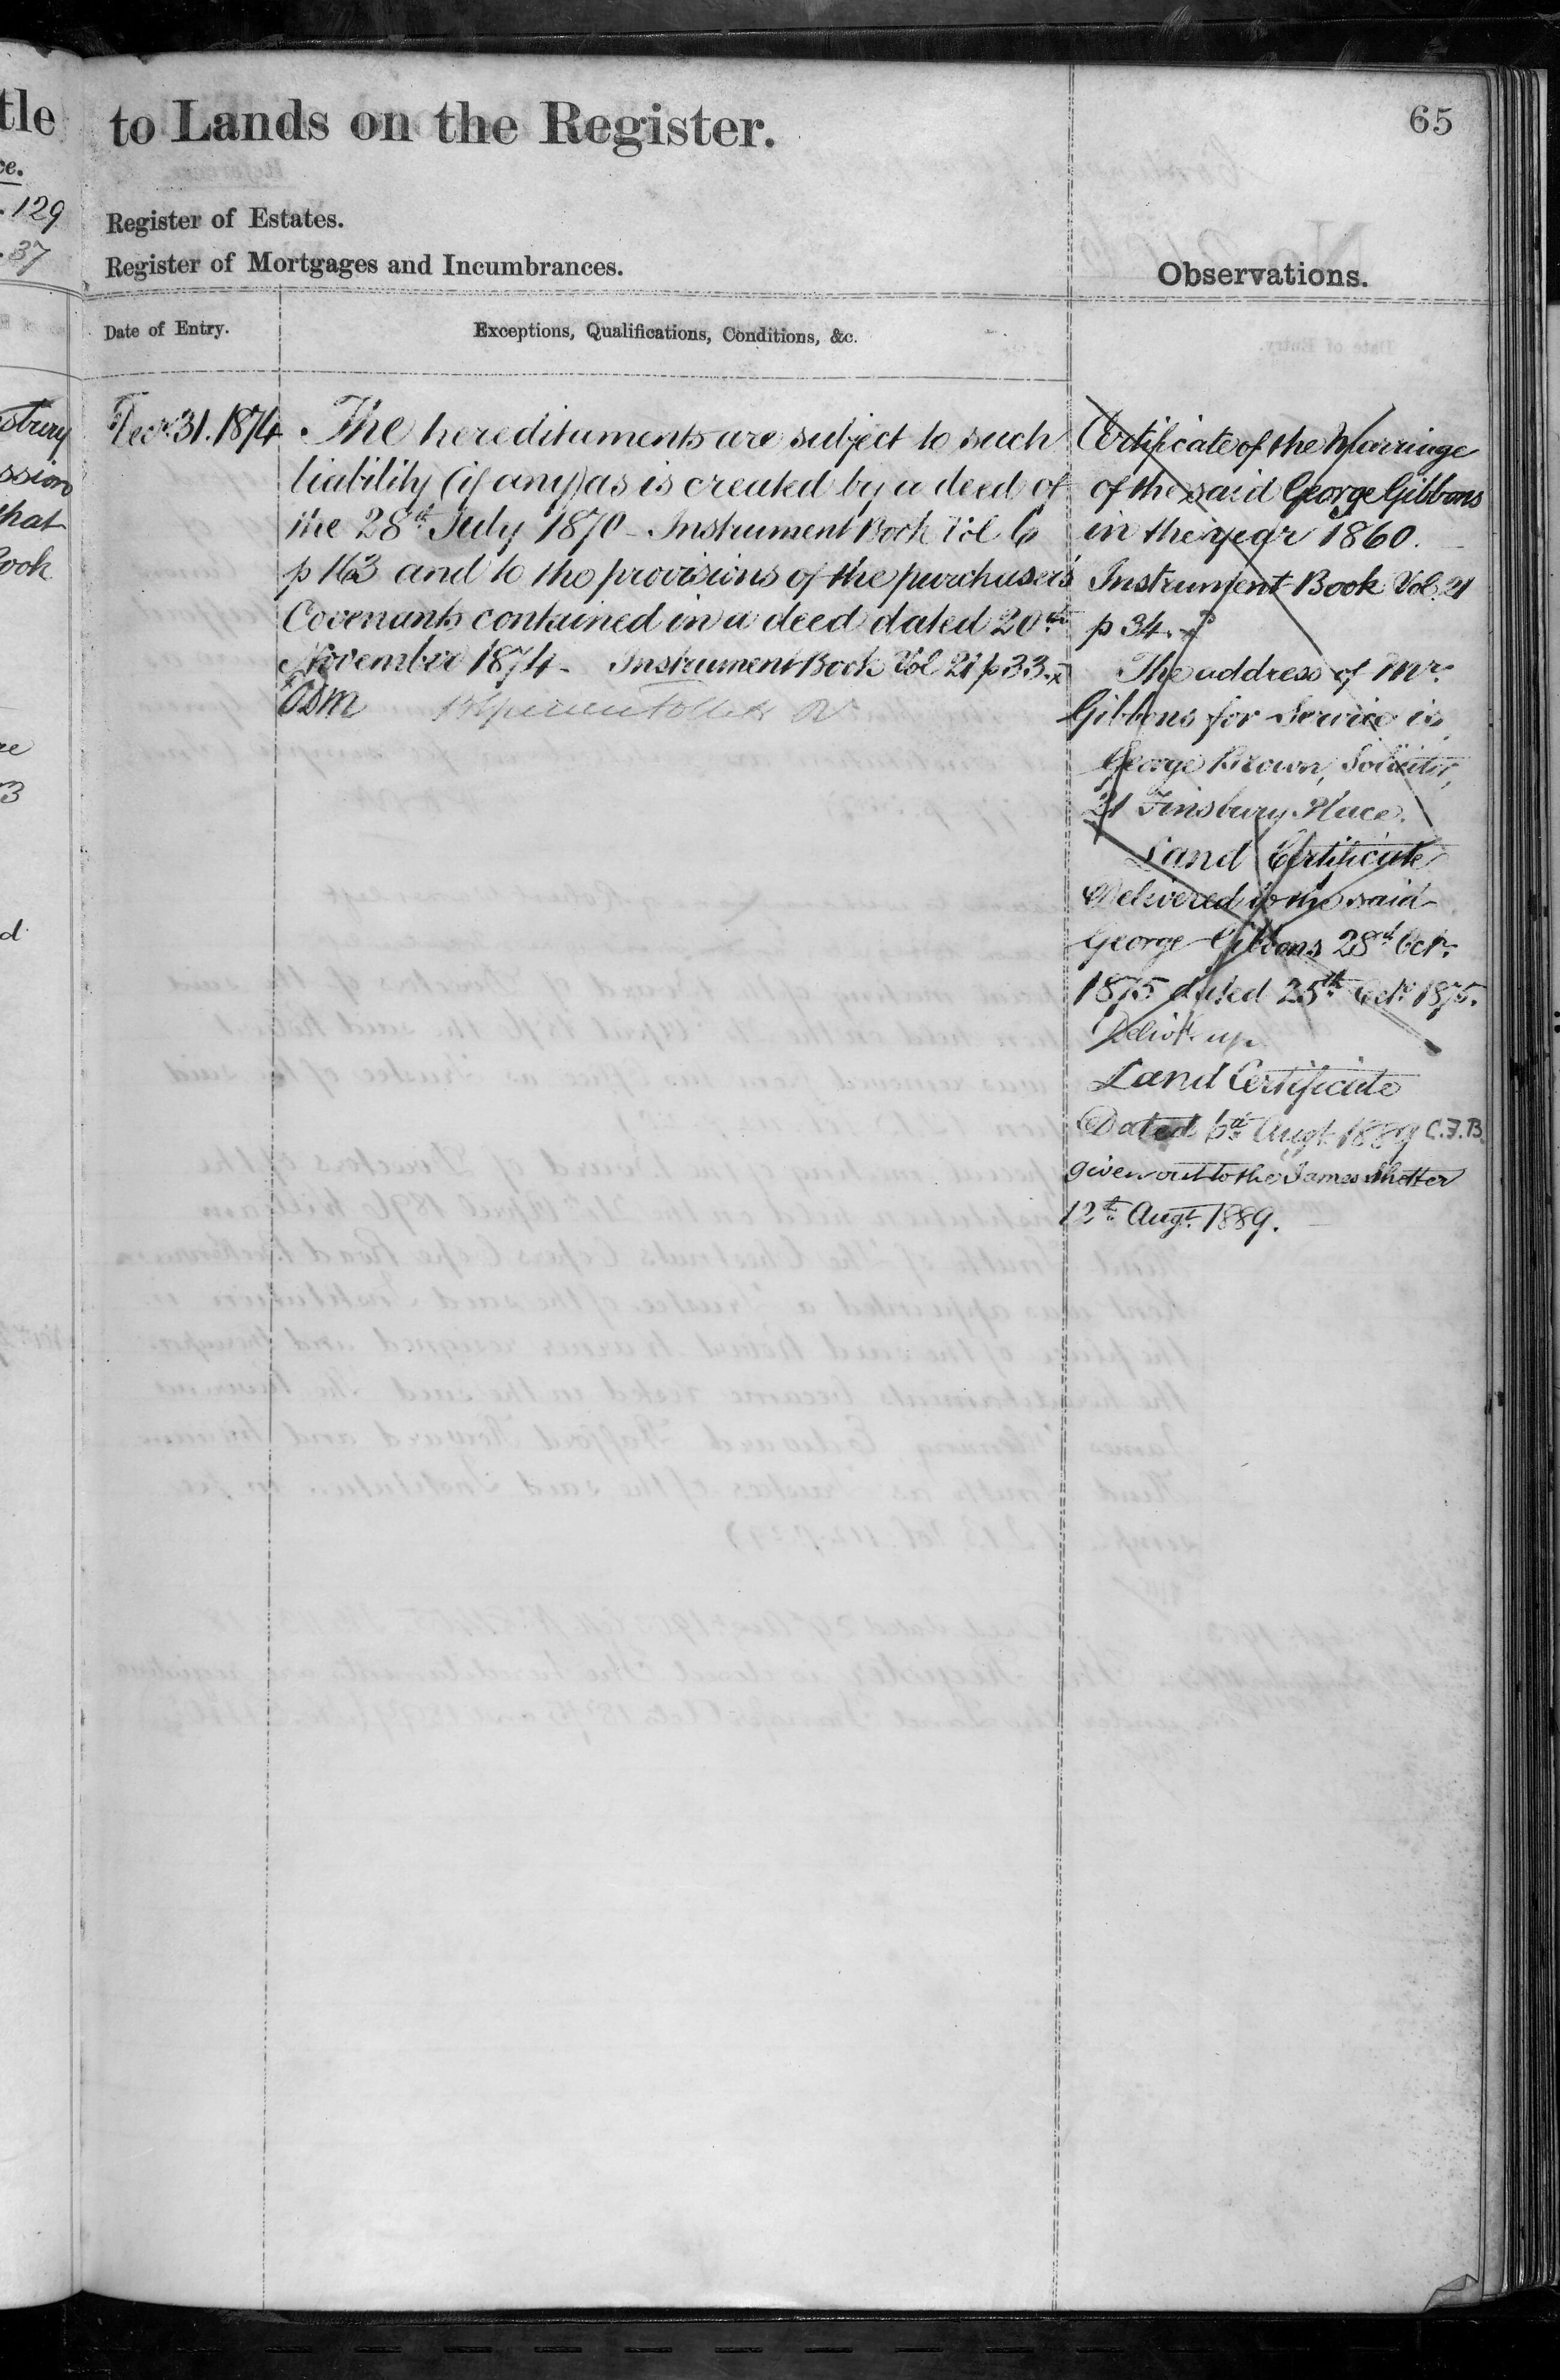 tle
ce.
. 129
. 37
sbury
ssion
that
Book
re
3
d
to Lands on the Register.
65
Register of Estates.
Register of Mortgages and Incumbrances.
Observations.
Date of Entry.
Exceptions, Qualifications, Conditions, &c.
Decr. 31. 1874
The hereditaments are subject to such
liability (if any) as is created by a deed of
the 28th July 1870 - Instrument Book Vol 6
p 163 and to the provisions of the purchasers
Covenants contained in a deed dated 20th
November 1874 - Instrument Book Vol 21 p 33.
Certificate of the Marriage
of the said George Gibbons
in the year 1860.
Instrument Book Vol. 21
p 34.
The address of Mr.
Gibbons for Service is
George Brown, Solicitor,
21 Finsbury Place.
Land Certificate
Delivered to the said
George Gibbons 28th Octr.
1875 dated 25th Octr. 1875.
Delivd. up.
Land Certificate
Dated 6th Augt. 1889 C.F.B.
given out to the James Shotter
12th Augt. 1889.